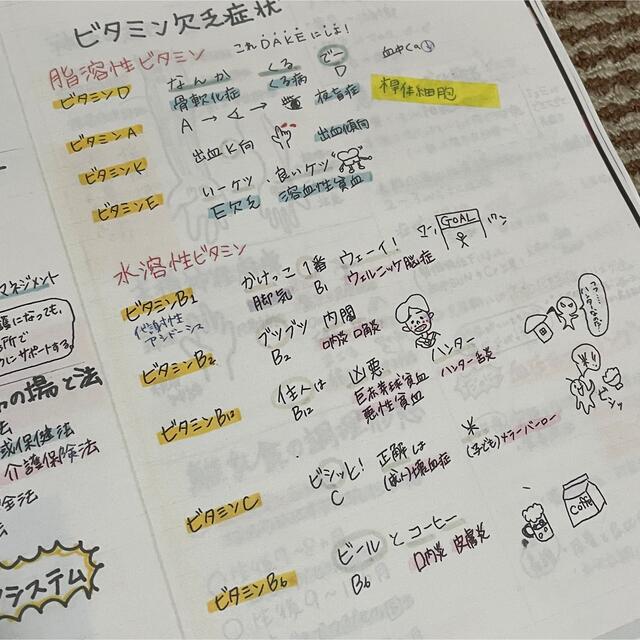 ビタミン欠乏症状
これDAKEにしよ!
脂溶性ビタミン
なんか くる でー
血中Ca↓
ビタミンD
骨軟化症 くる病 D
桿体細胞
A→∢→ 夜盲症
ビタミンA
出血K向 出血傾向
ビタミンK
いーケツ 良いケツ
ビタミンE
E欠乏 溶血性貧血
水溶性ビタミン
GOAL
かけっこ 1番 ウェーイ!
ビタミンB1
脚気 B1 ウェルニッケ脳症
代謝性
アシドーシス
ブツブツ 内閣
B2 口内炎 口角炎
ビタミンB2
住人は 凶悪 ハンター
B12 巨赤芽球貧血 ハンター舌炎
悪性貧血
ビタミンB12
ビシッと! 正解は
C (成人)壊血症 (子ども)メラーバーロー
ビタミンC
ビール と コーヒー
B6 口内炎 皮膚炎
ビタミンB6
マネジメント
護になっても、
場所で
うにサポートする。
の場と法
法
域保健法
介護保険法
全法
法
システム